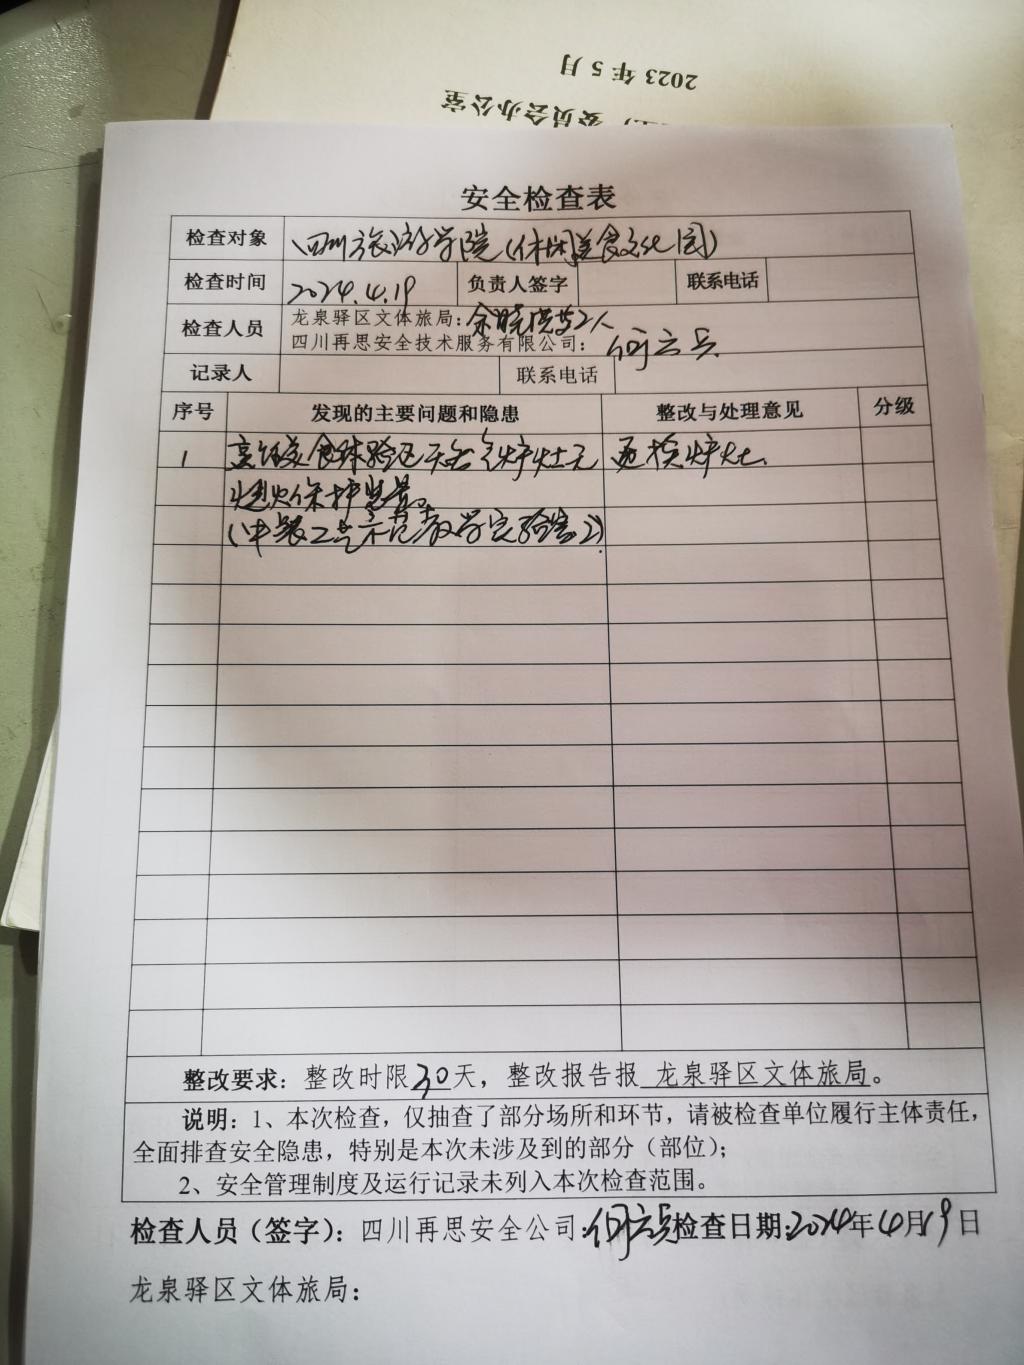 2023 年 5 月
委员会办公室
安全检查表
检查对象 四川旅游学院(休闲美食文化园)
检查时间 2024.4.19 负责人签字 联系电话
检查人员 龙泉驿区文体旅局: 余晓 等2人
四川再思安全技术服务有限公司: 何云兵
记录人 联系电话
序号 发现的主要问题和隐患 整改与处理意见 分级
1 烹饪美食体验区天然气炉灶无 更换炉灶.
熄火保护装置。
(中餐工艺示范教学实验室2)
整改要求: 整改时限30天, 整改报告报 龙泉驿区文体旅局。
说明: 1、本次检查, 仅抽查了部分场所和环节, 请被检查单位履行主体责任,
全面排查安全隐患, 特别是本次未涉及到的部分 (部位);
2、安全管理制度及运行记录未列入本次检查范围。
检查人员 (签字): 四川再思安全公司: 何云兵 检查日期: 2024年4月19日
龙泉驿区文体旅局: